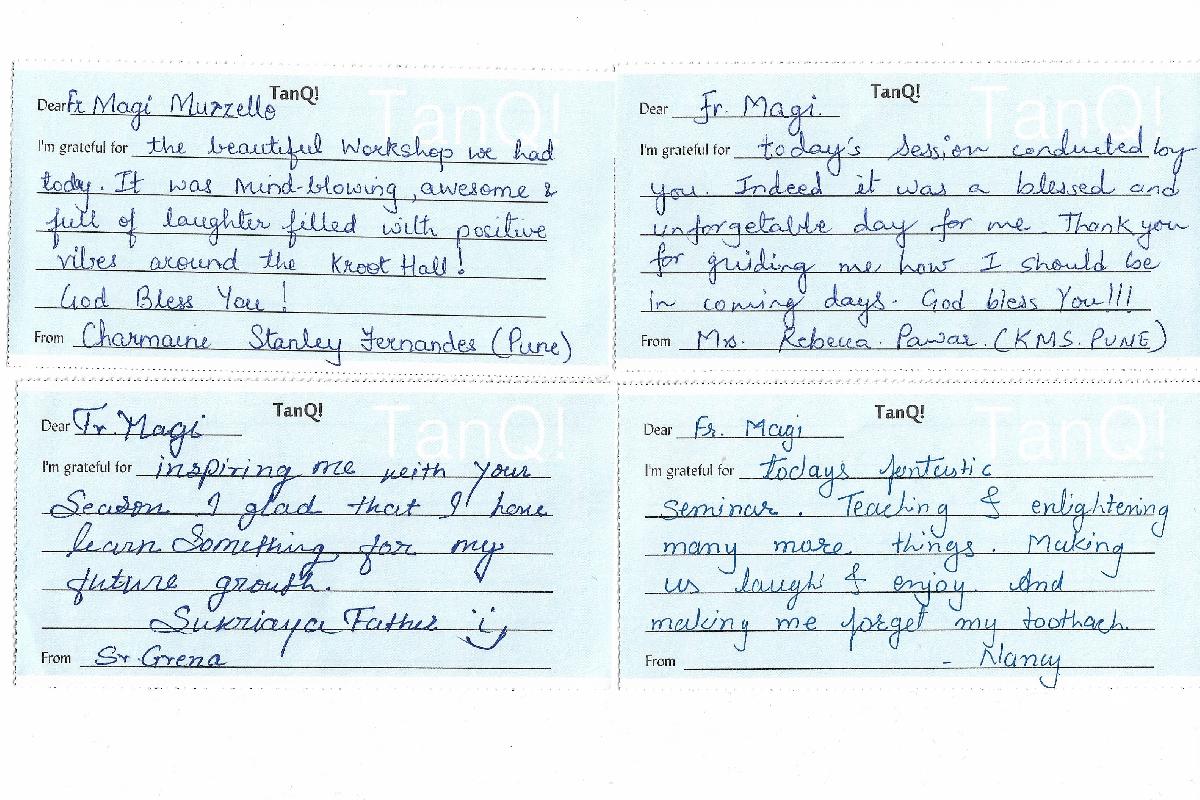 TanQ!
Dear Fr Magi Murzello
I'm grateful for the beautiful Workshop we had
today. It was Mind-blowing, awesome &
full of laughter filled with positive
vibes around the Kroot Hall!
God Bless You!
From Charmaine Stanley Fernandes (Pune)
TanQ!
Dear Fr. Magi.
I'm grateful for today's session conducted by
you. Indeed it was a blessed and
unforgetable day for me. Thank you
for guiding me how I should be
in coming days. God bless You!!!
From Mrs. Rebecca. Pawar. (KMS. PUNE)
TanQ!
Dear Fr. Magi
I'm grateful for inspiring me with your
Season I glad that I have
learn Something for my
future growth.
Sukriaya Father
From Sr. Grena
TanQ!
Dear Fr. Magi
I'm grateful for todays fentastic
seminar. Teaching & enlightening
many more things. Making
us laugh & enjoy. And
making me forget my toothach.
From - Nancy